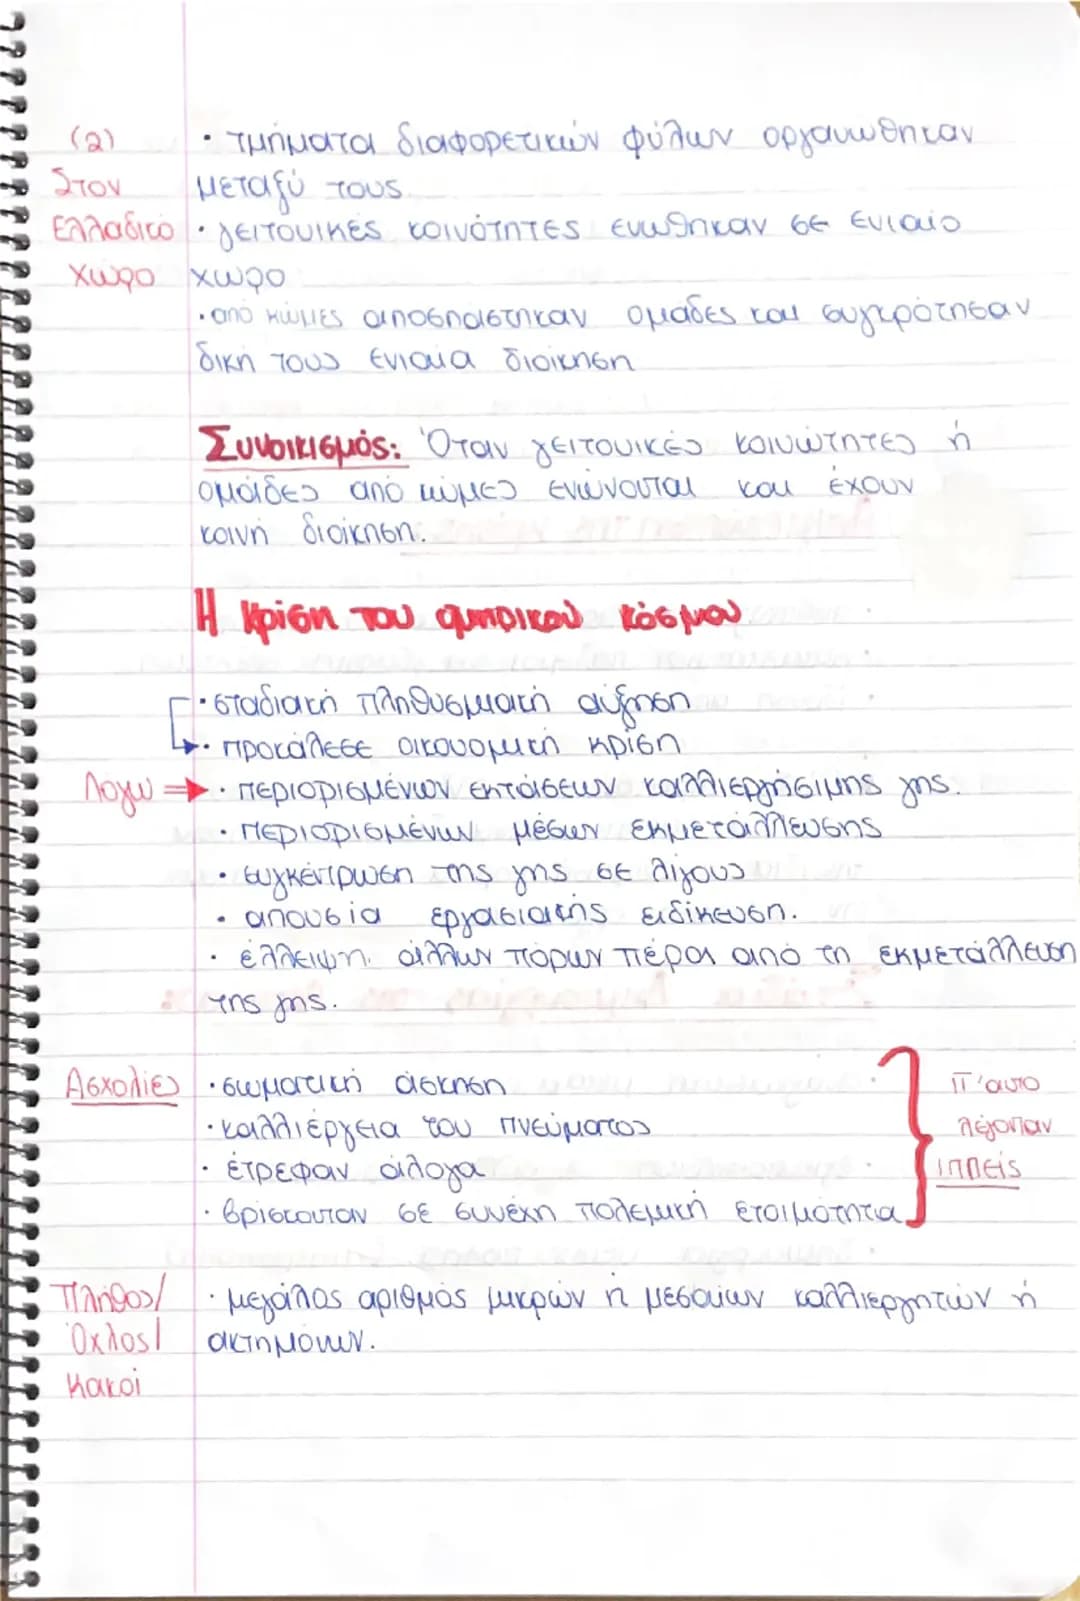 (2) · τμήματα διαφορετικών φύλων οργανώθηκαν
Στον μεταξύ τους.
Ελλαδικό · γειτονικές κοινότητες ενώθηκαν σε ενιαίο
χώρο χώρο
· από κώμες αποσπάστηκαν ομάδες και συγκρότησαν
δική τους ενιαία διοίκηση
Συνοικισμός: Όταν γειτονικές κοινώτητες ή
ομάδες από κώμες ενώνονται και έχουν
κοινή διοίκηση.
Η Κρίση του ομηρικού κόσμου
· σταδιακή πληθυσμιακή αύξηση
· προκάλεσε οικονομική κρίση
Λόγω ⇒ · περιορισμένων εκτάσεων καλλιεργήσιμης γης.
· περιορισμένων μέσων εκμετάλλευσης
· συγκέντρωση της γης σε λίγους
· απουσία εργασιακής ειδίκευση.
· έλλειψη άλλων πόρων πέρα από τη εκμετάλλευση
της γης.
Ασχολίες · σωματική άσκηση
· καλλιέργεια του πνεύματος
· έτρεφαν άλογα
· βρίσκονταν σε συνέχη πολεμική ετοιμότητα
π'αυτο
λέγονταν
ιππείς
Πλήθος/ · μεγάλος αριθμός μικρών ή μεσαίων καλλιεργητών ή
Όχλος/ ακτημόνων.
Κακοί